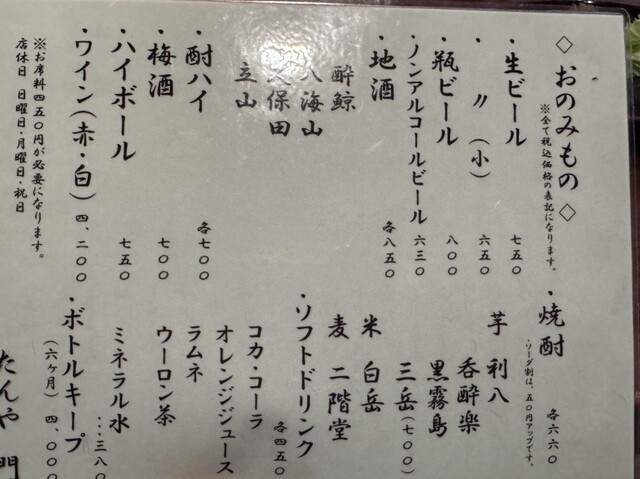 ◇ おのみもの ◇
※全て税込価格の表記になります。
・生ビール 七五〇
・〃（小） 六五〇
・瓶ビール 八〇〇
・ノンアルコールビール 六三〇
・地酒 各八五〇
酔鯨
八海山
久保田
立山
・酎ハイ 各七〇〇
・梅酒 七〇〇
・ハイボール 七五〇
・ワイン（赤・白） 四、二〇〇
※お席料四五〇円が必要になります。
店休日 日曜日・月曜日・祝日
・焼酎 各六六〇
・ソーダ割は、五〇円アップです。
芋 利八
呑酔楽
黒霧島
三岳（七〇〇）
米 白岳
麦 二階堂
・ソフトドリンク 各四五〇
コカ・コーラ
オレンジジュース
ラムネ
ウーロン茶
ミネラル水 …三八〇
・ボトルキープ
（六ヶ月） 四、〇〇〇
たんや